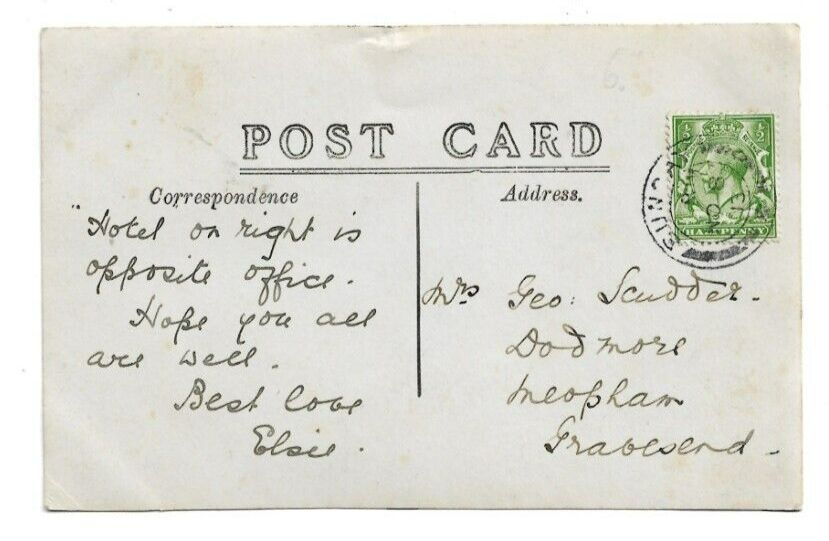 POST CARD
½ ½
HALFPENNY
Correspondence
Address.
"Hotel on right is
opposite office.
Hope you all
are well.
Best love
Elsie.
Mrs Geo: Scudder.
Dodmore
Meopham
Gravesend.